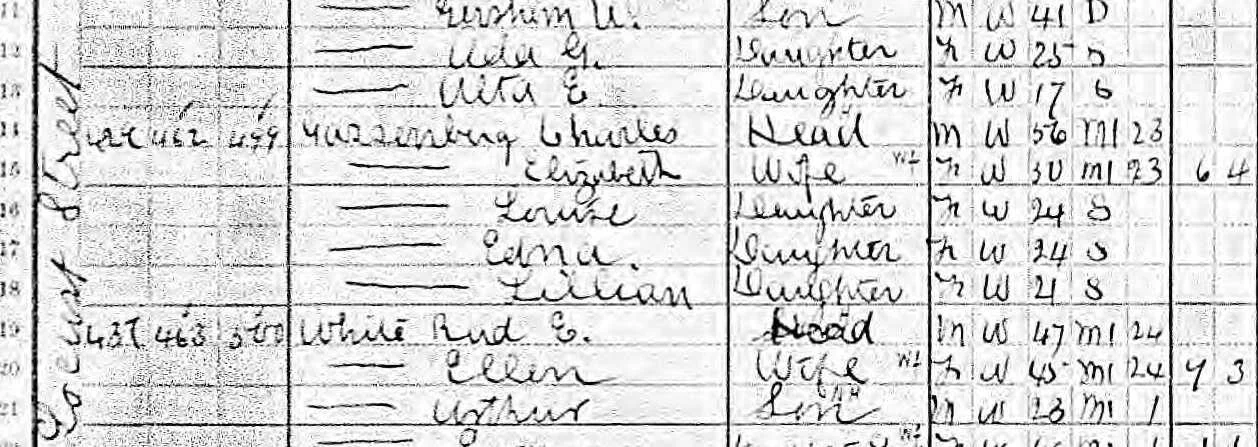 11 Gershem U. Son M W 41 D
12 — Ada G. Daughter F W 25 S
13 — Alta E. Daughter F W 17 S
14 462 499 Charles Head M W 56 M1 23
15 — Elizabeth Wife F W 50 M1 23 6 4
16 — Louise Daughter F W 24 S
17 — Edna. Daughter F W 24 S
18 — Lillian Daughter F W 21 S
19 437 463 500 White E. Head M W 47 M1 24
20 — Ellen Wife F W 45 M1 24 4 3
21 — Arthur Son M W 23 M1 1
Street